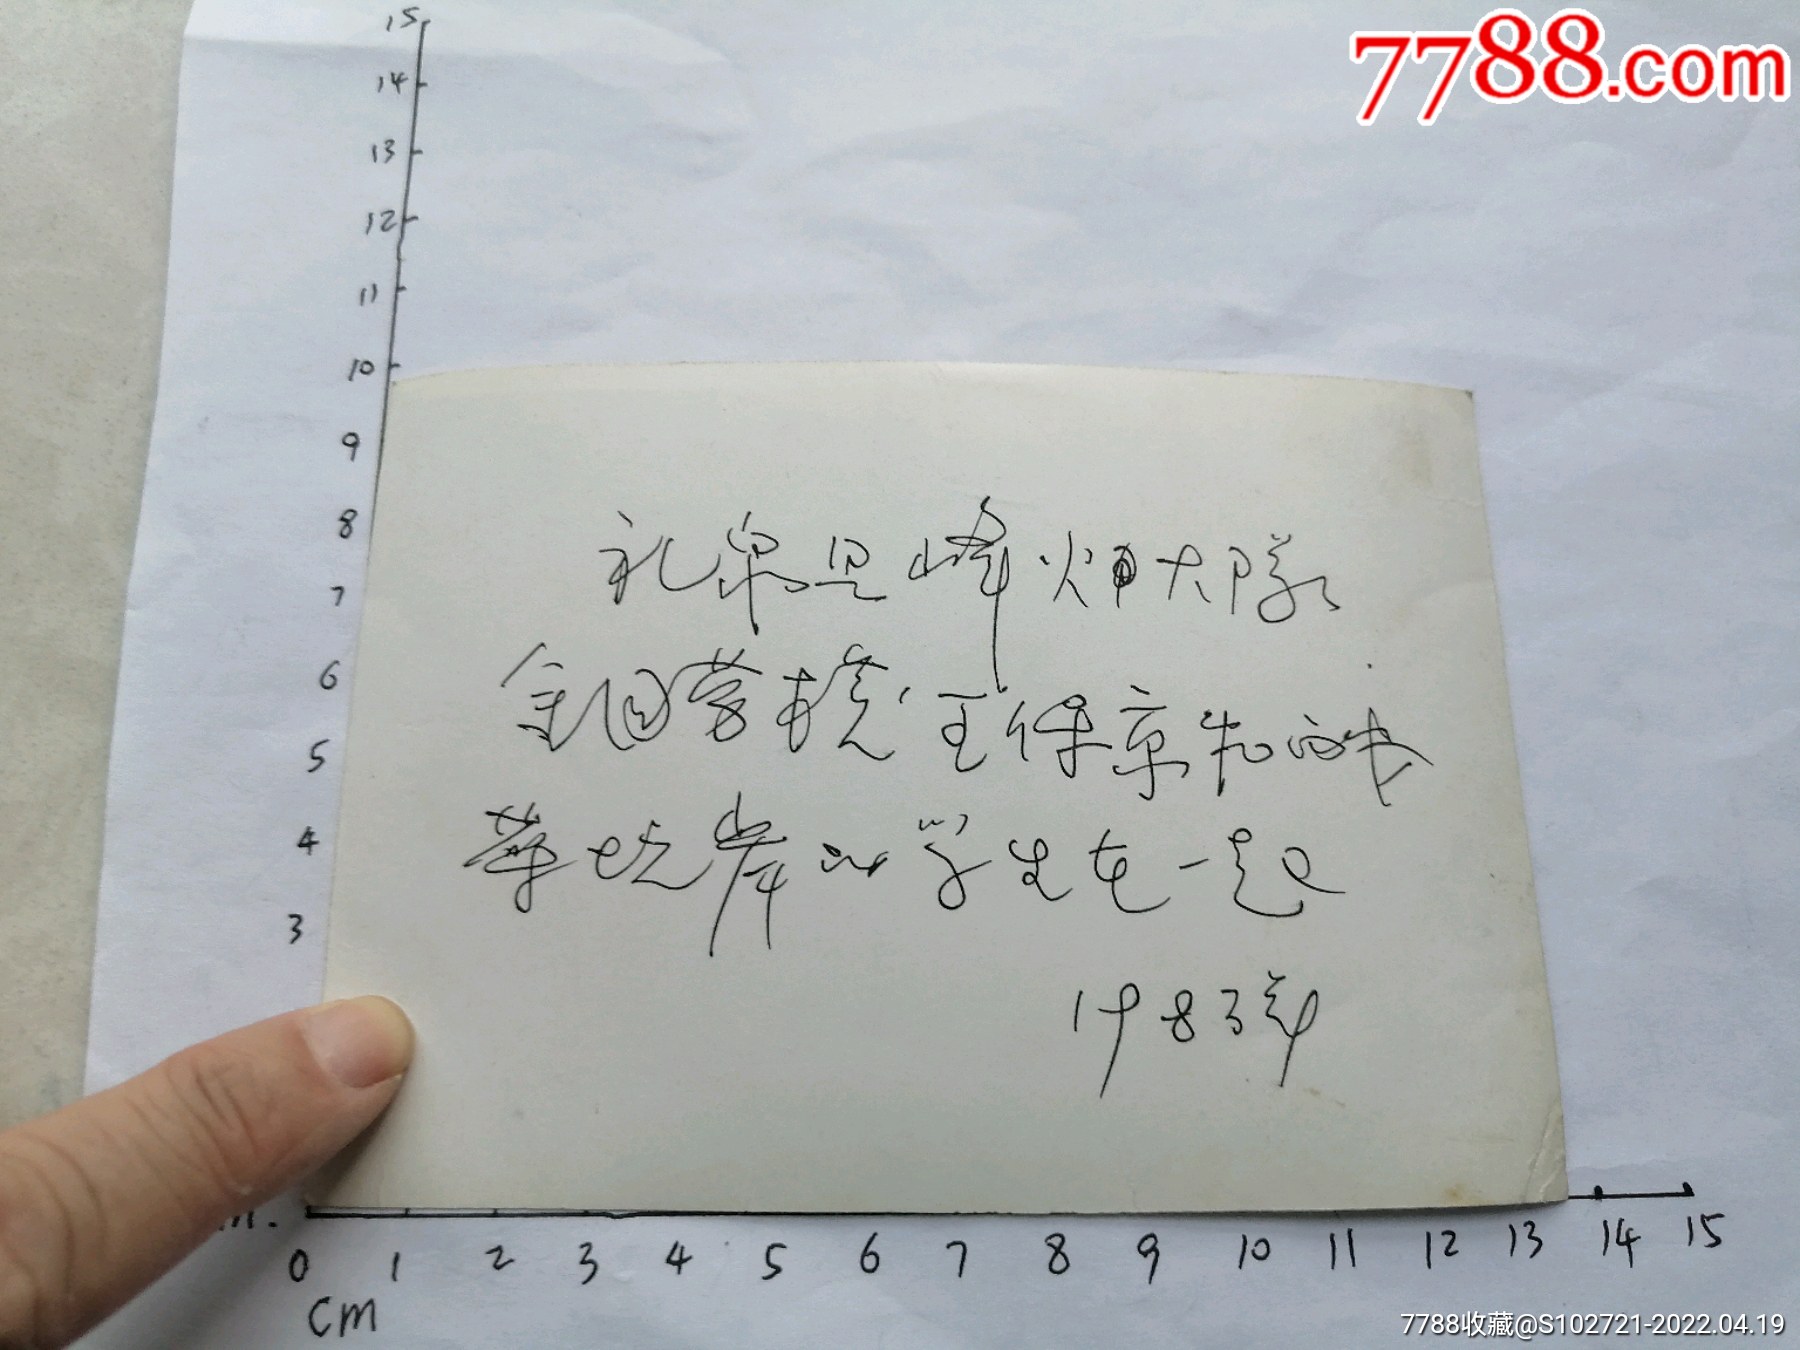 7788.com
15
14
13
12
11
10
9
8
7
6
5
4
3
礼泉县峰火大队
全国劳模,王保京和
学生在一起
1983年
0 1 2 3 4 5 6 7 8 9 10 11 12 13 14 15
cm
7788收藏@S102721-2022.04.19